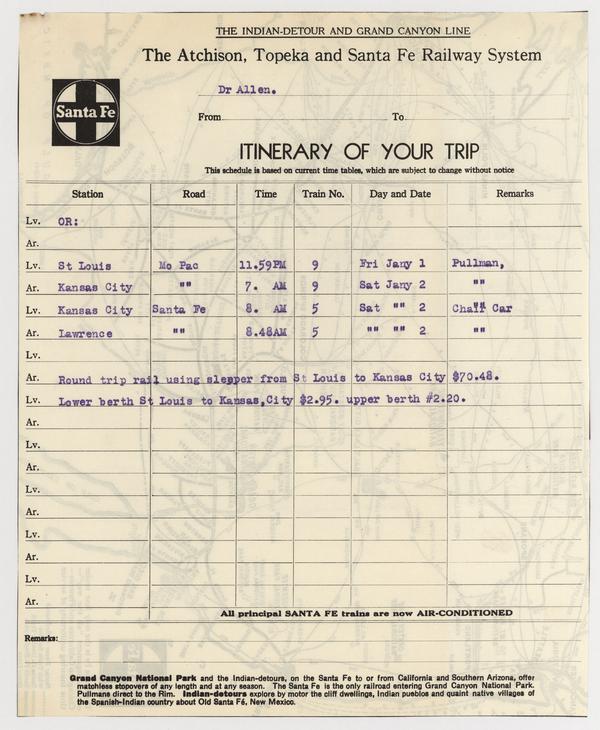 THE INDIAN-DETOUR AND GRAND CANYON LINE
The Atchison, Topeka and Santa Fe Railway System
Santa Fe
Dr Allen.
From To
ITINERARY OF YOUR TRIP
This schedule is based on current time tables, which are subject to change without notice
Station Road Time Train No. Day and Date Remarks
Lv. OR:
Ar.
Lv. St Louis Mo Pac 11.59PM 9 Fri Jany 1 Pullman,
Ar. Kansas City "" 7. AM 9 Sat Jany 2 ""
Lv. Kansas City Santa Fe 8. AM 5 Sat "" 2 Chair Car
Ar. Lawrence "" 8.48AM 5 "" "" 2 ""
Lv.
Ar. Round trip rail using slepper from St Louis to Kansas City $70.48.
Lv. Lower berth St Louis to Kansas,City $2.95. upper berth #2.20.
Ar.
Lv.
Ar.
Lv.
Ar.
Lv.
Ar.
Lv.
Ar.
All principal SANTA FE trains are now AIR-CONDITIONED
Remarks:
Grand Canyon National Park and the Indian-detours, on the Santa Fe to or from California and Southern Arizona, offer
matchless stopovers of any length and at any season. The Santa Fe is the only railroad entering Grand Canyon National Park.
Pullmans direct to the Rim. Indian-detours explore by motor the cliff dwellings, Indian pueblos and quaint native villages of
the Spanish-Indian country about Old Santa Fé, New Mexico.